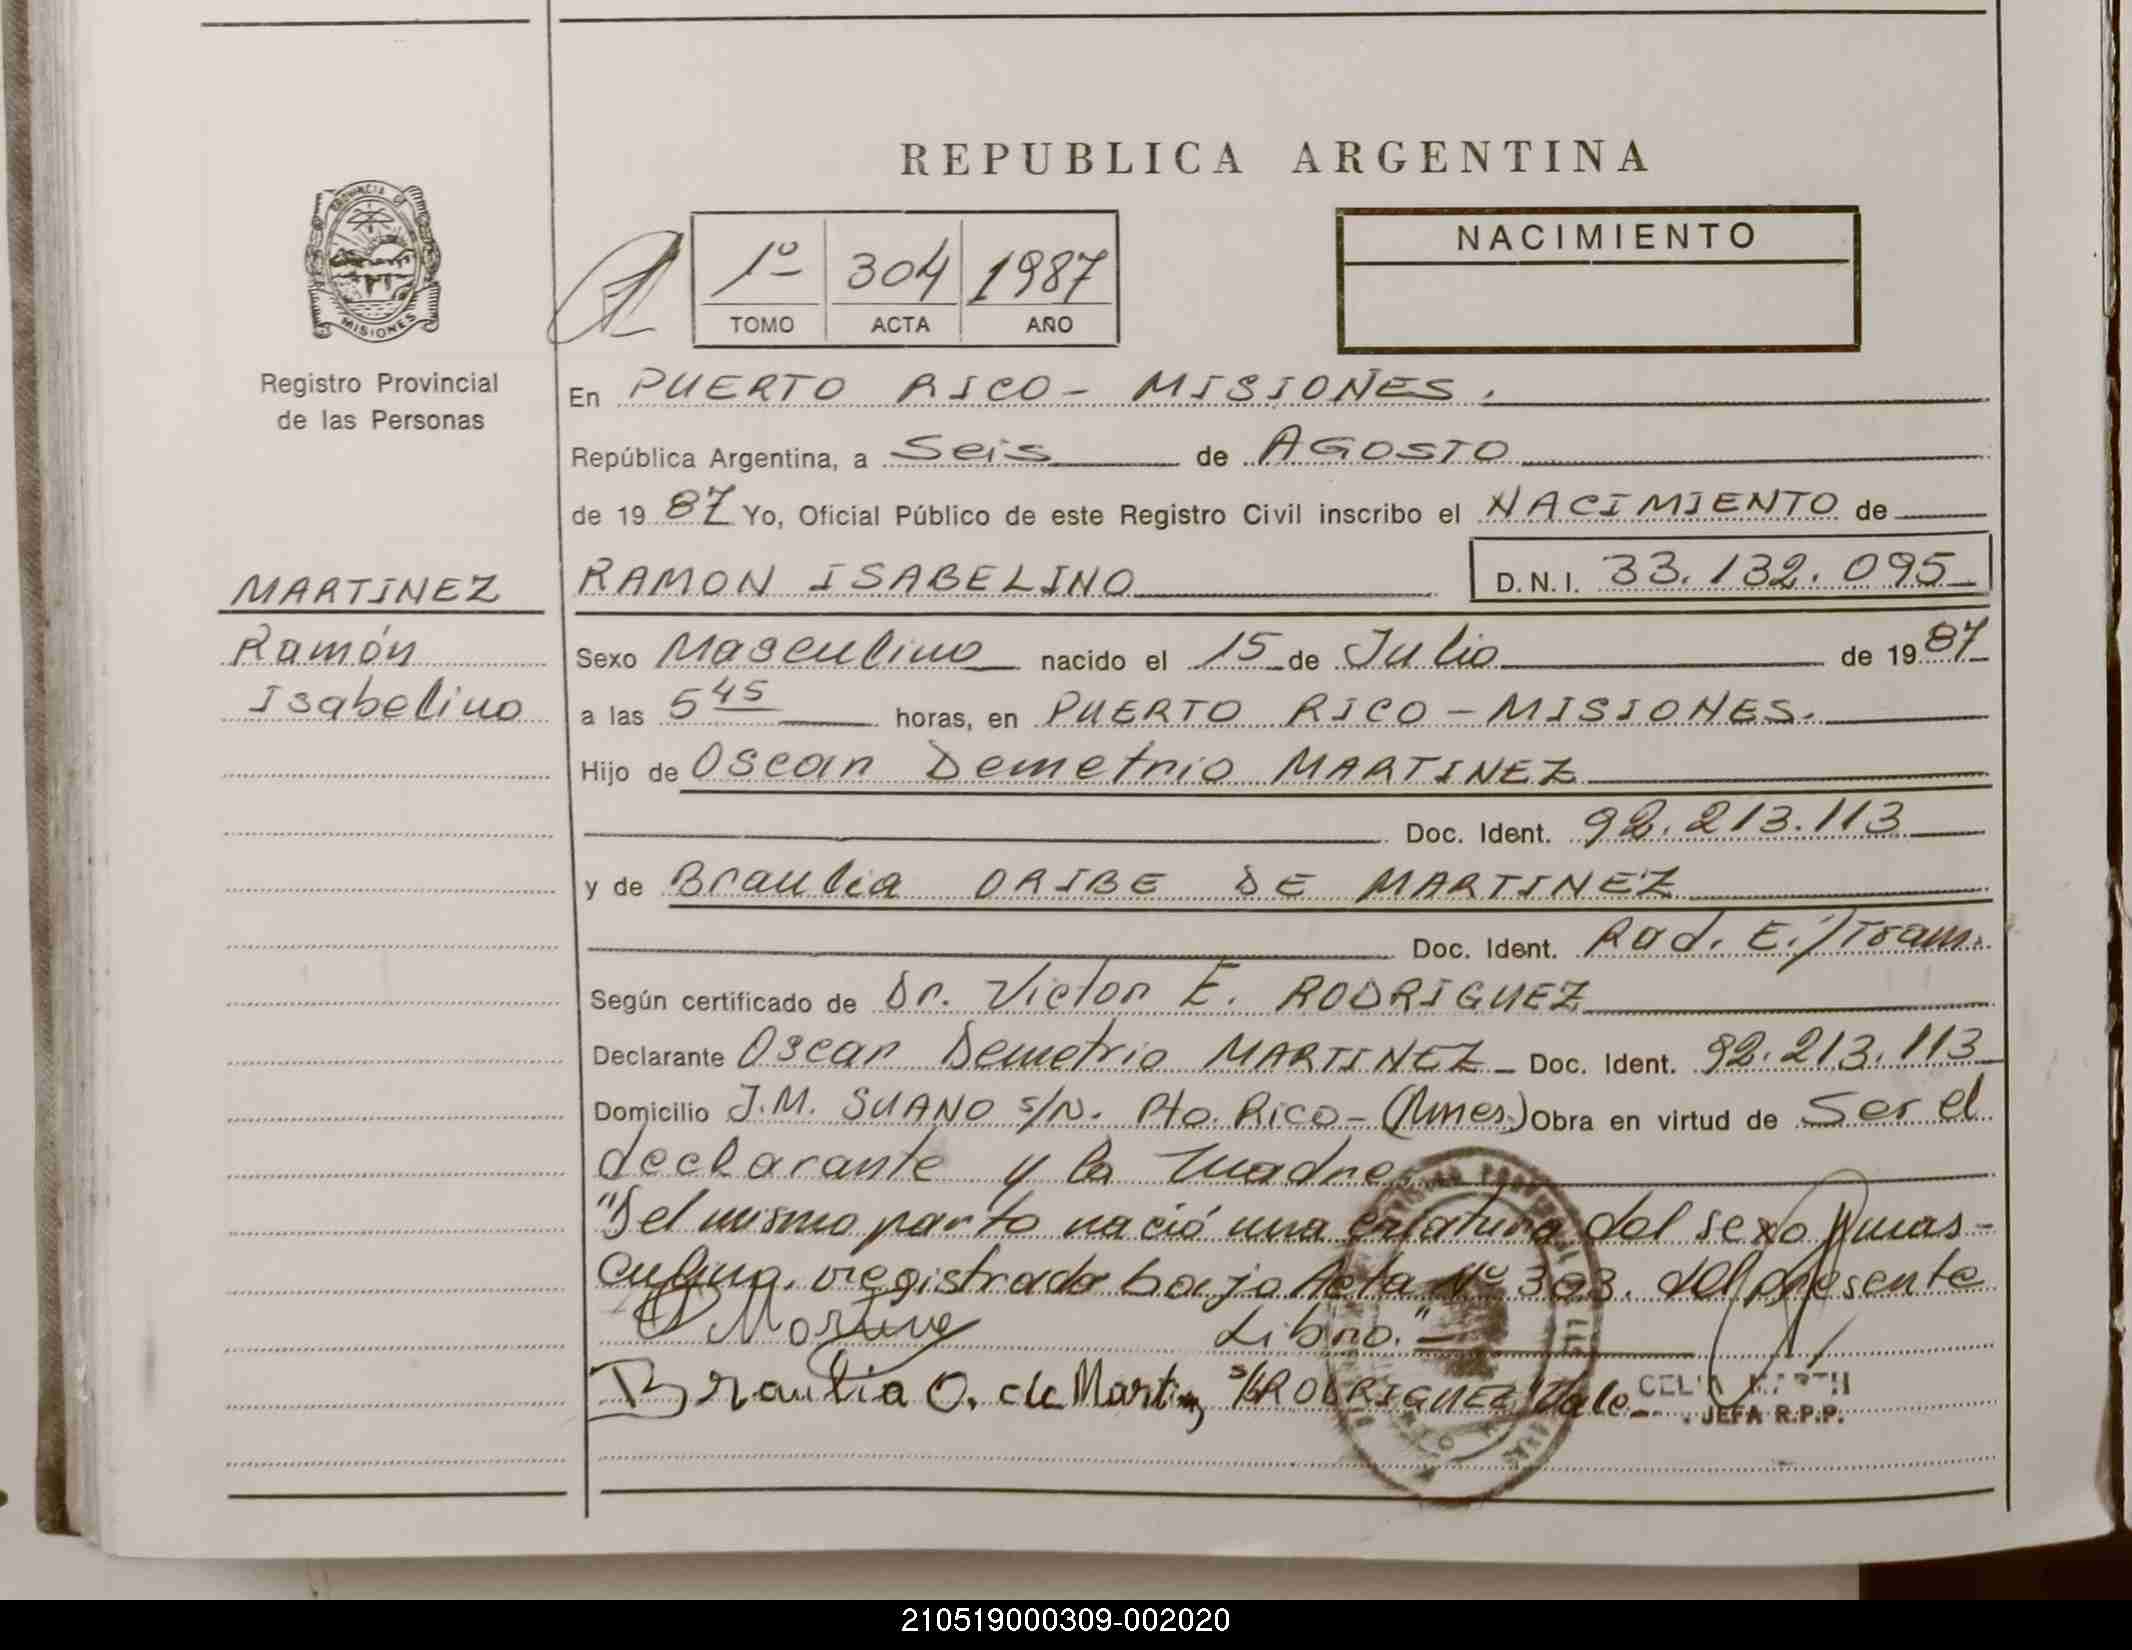 REPUBLICA ARGENTINA
PROVINCIA DE
MISIONES
Registro Provincial
de las Personas
1º 304 1987
TOMO ACTA AÑO
NACIMIENTO
En PUERTO RICO - MISIONES.
República Argentina, a Seis de AGOSTO
de 19 87 Yo, Oficial Público de este Registro Civil inscribo el NACIMIENTO de
MARTINEZ
Ramón
Isabelino
RAMON ISABELINO D.N.I. 33.132.095
Sexo Masculino nacido el 15 de Julio de 19 87
a las 5 45 horas, en PUERTO RICO - MISIONES.
Hijo de Oscar Demetrio MARTINEZ
Doc. Ident. 92.213.113
y de Braulia ORIBE DE MARTINEZ
Doc. Ident. Rad. E./Tram.
Según certificado de Dr. Victor E. RODRIGUEZ
Declarante Oscar Demetrio MARTINEZ - Doc. Ident. 92.213.113
Domicilio J.M. SUANO s/N. Pto. Rico - (Mnes.) Obra en virtud de Ser el
declarante y la madre.
"Del mismo parto nació una criatura del sexo mas-
culino, registrada bajo Acta Nº 303. del presente
Libro."
Braulia O. de Martinez s/RODRIGUEZ Vale
CELIA
JEFA R.P.P.
210519000309-002020